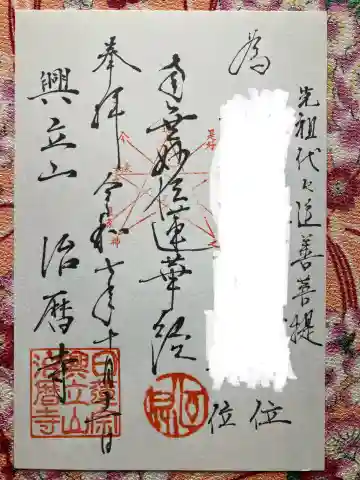 先祖代々追善菩提
為
位
位
南無妙法蓮華経
奉拝 令和七年十月
興立山 治暦寺
日蓮宗
興立山
治暦寺